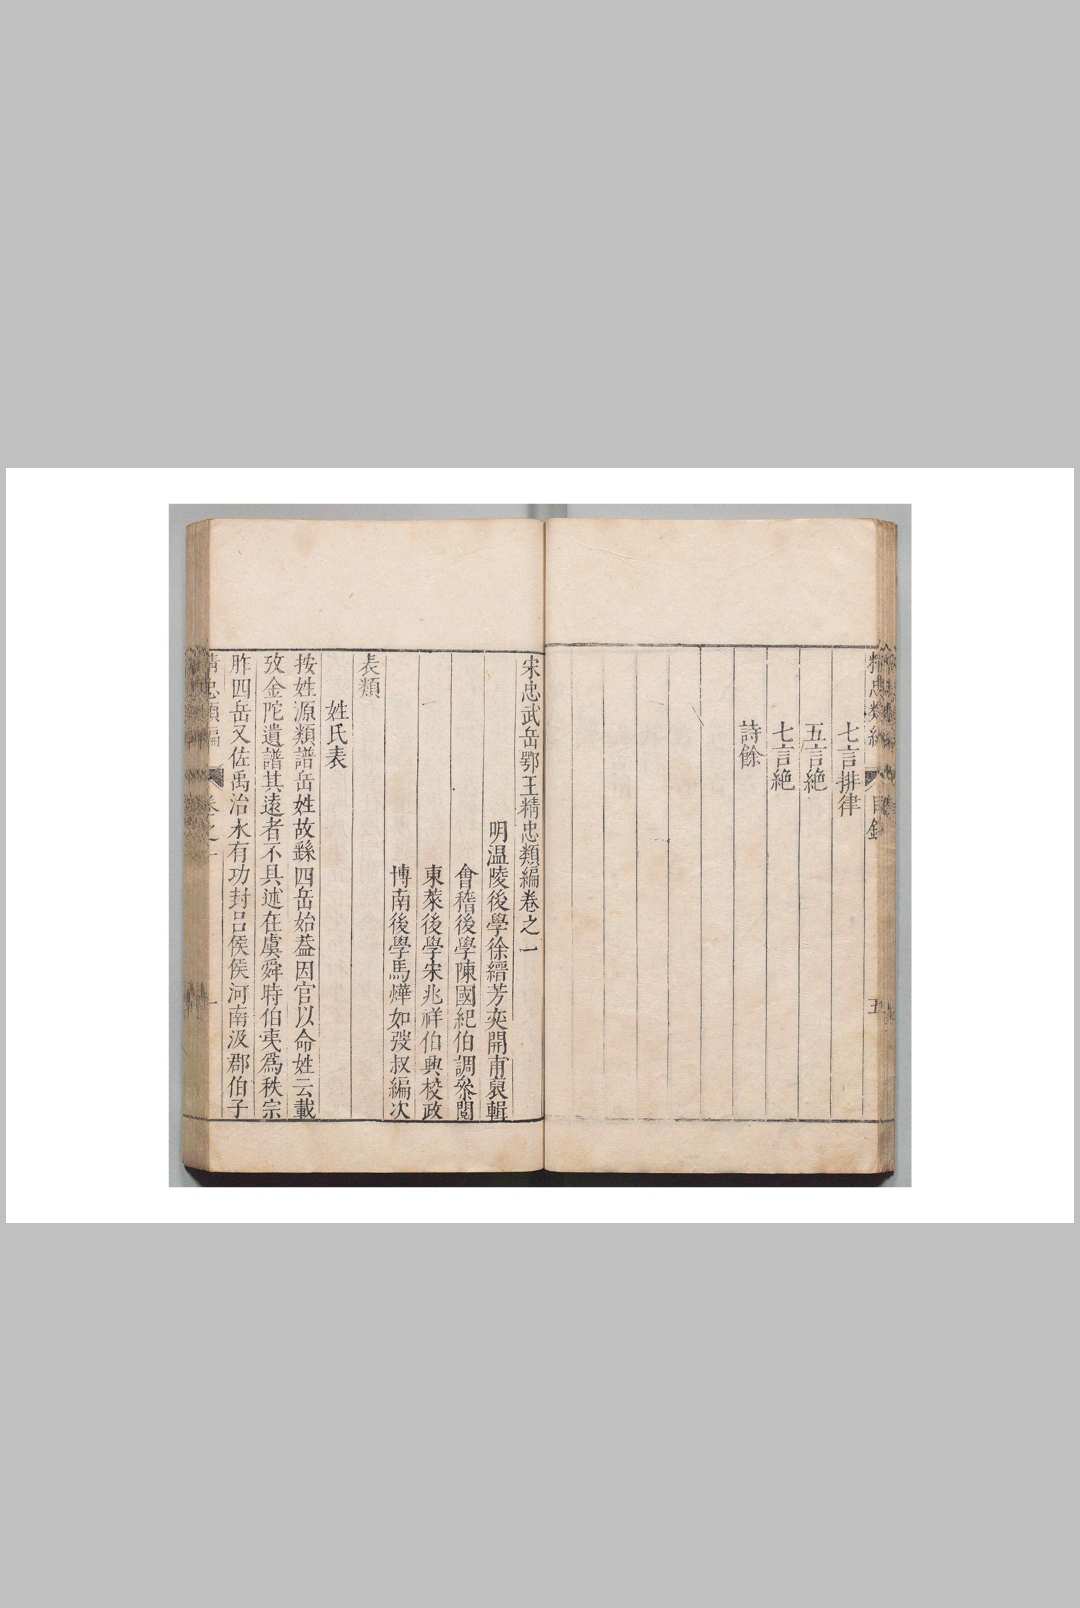 精忠類編 目錄 五
七言排律
五言絶
七言絶
詩餘
宋忠武岳鄂王精忠類編卷之一
明温陵後學徐縉芳奕開甫裒輯
會稽後學陳國紀伯調叅閲
東萊後學宋兆祥伯興校政
博南後學馬燁如弢叔編次
表類
姓氏表
按姓源類譜岳姓故繇四岳始葢因官以命姓云載
攷金陀遺譜其遠者不具述在虞舜時伯夷爲秩宗
胙四岳又佐禹治水有功封吕侯侯河南汲郡伯子
精忠類編 卷之一 一